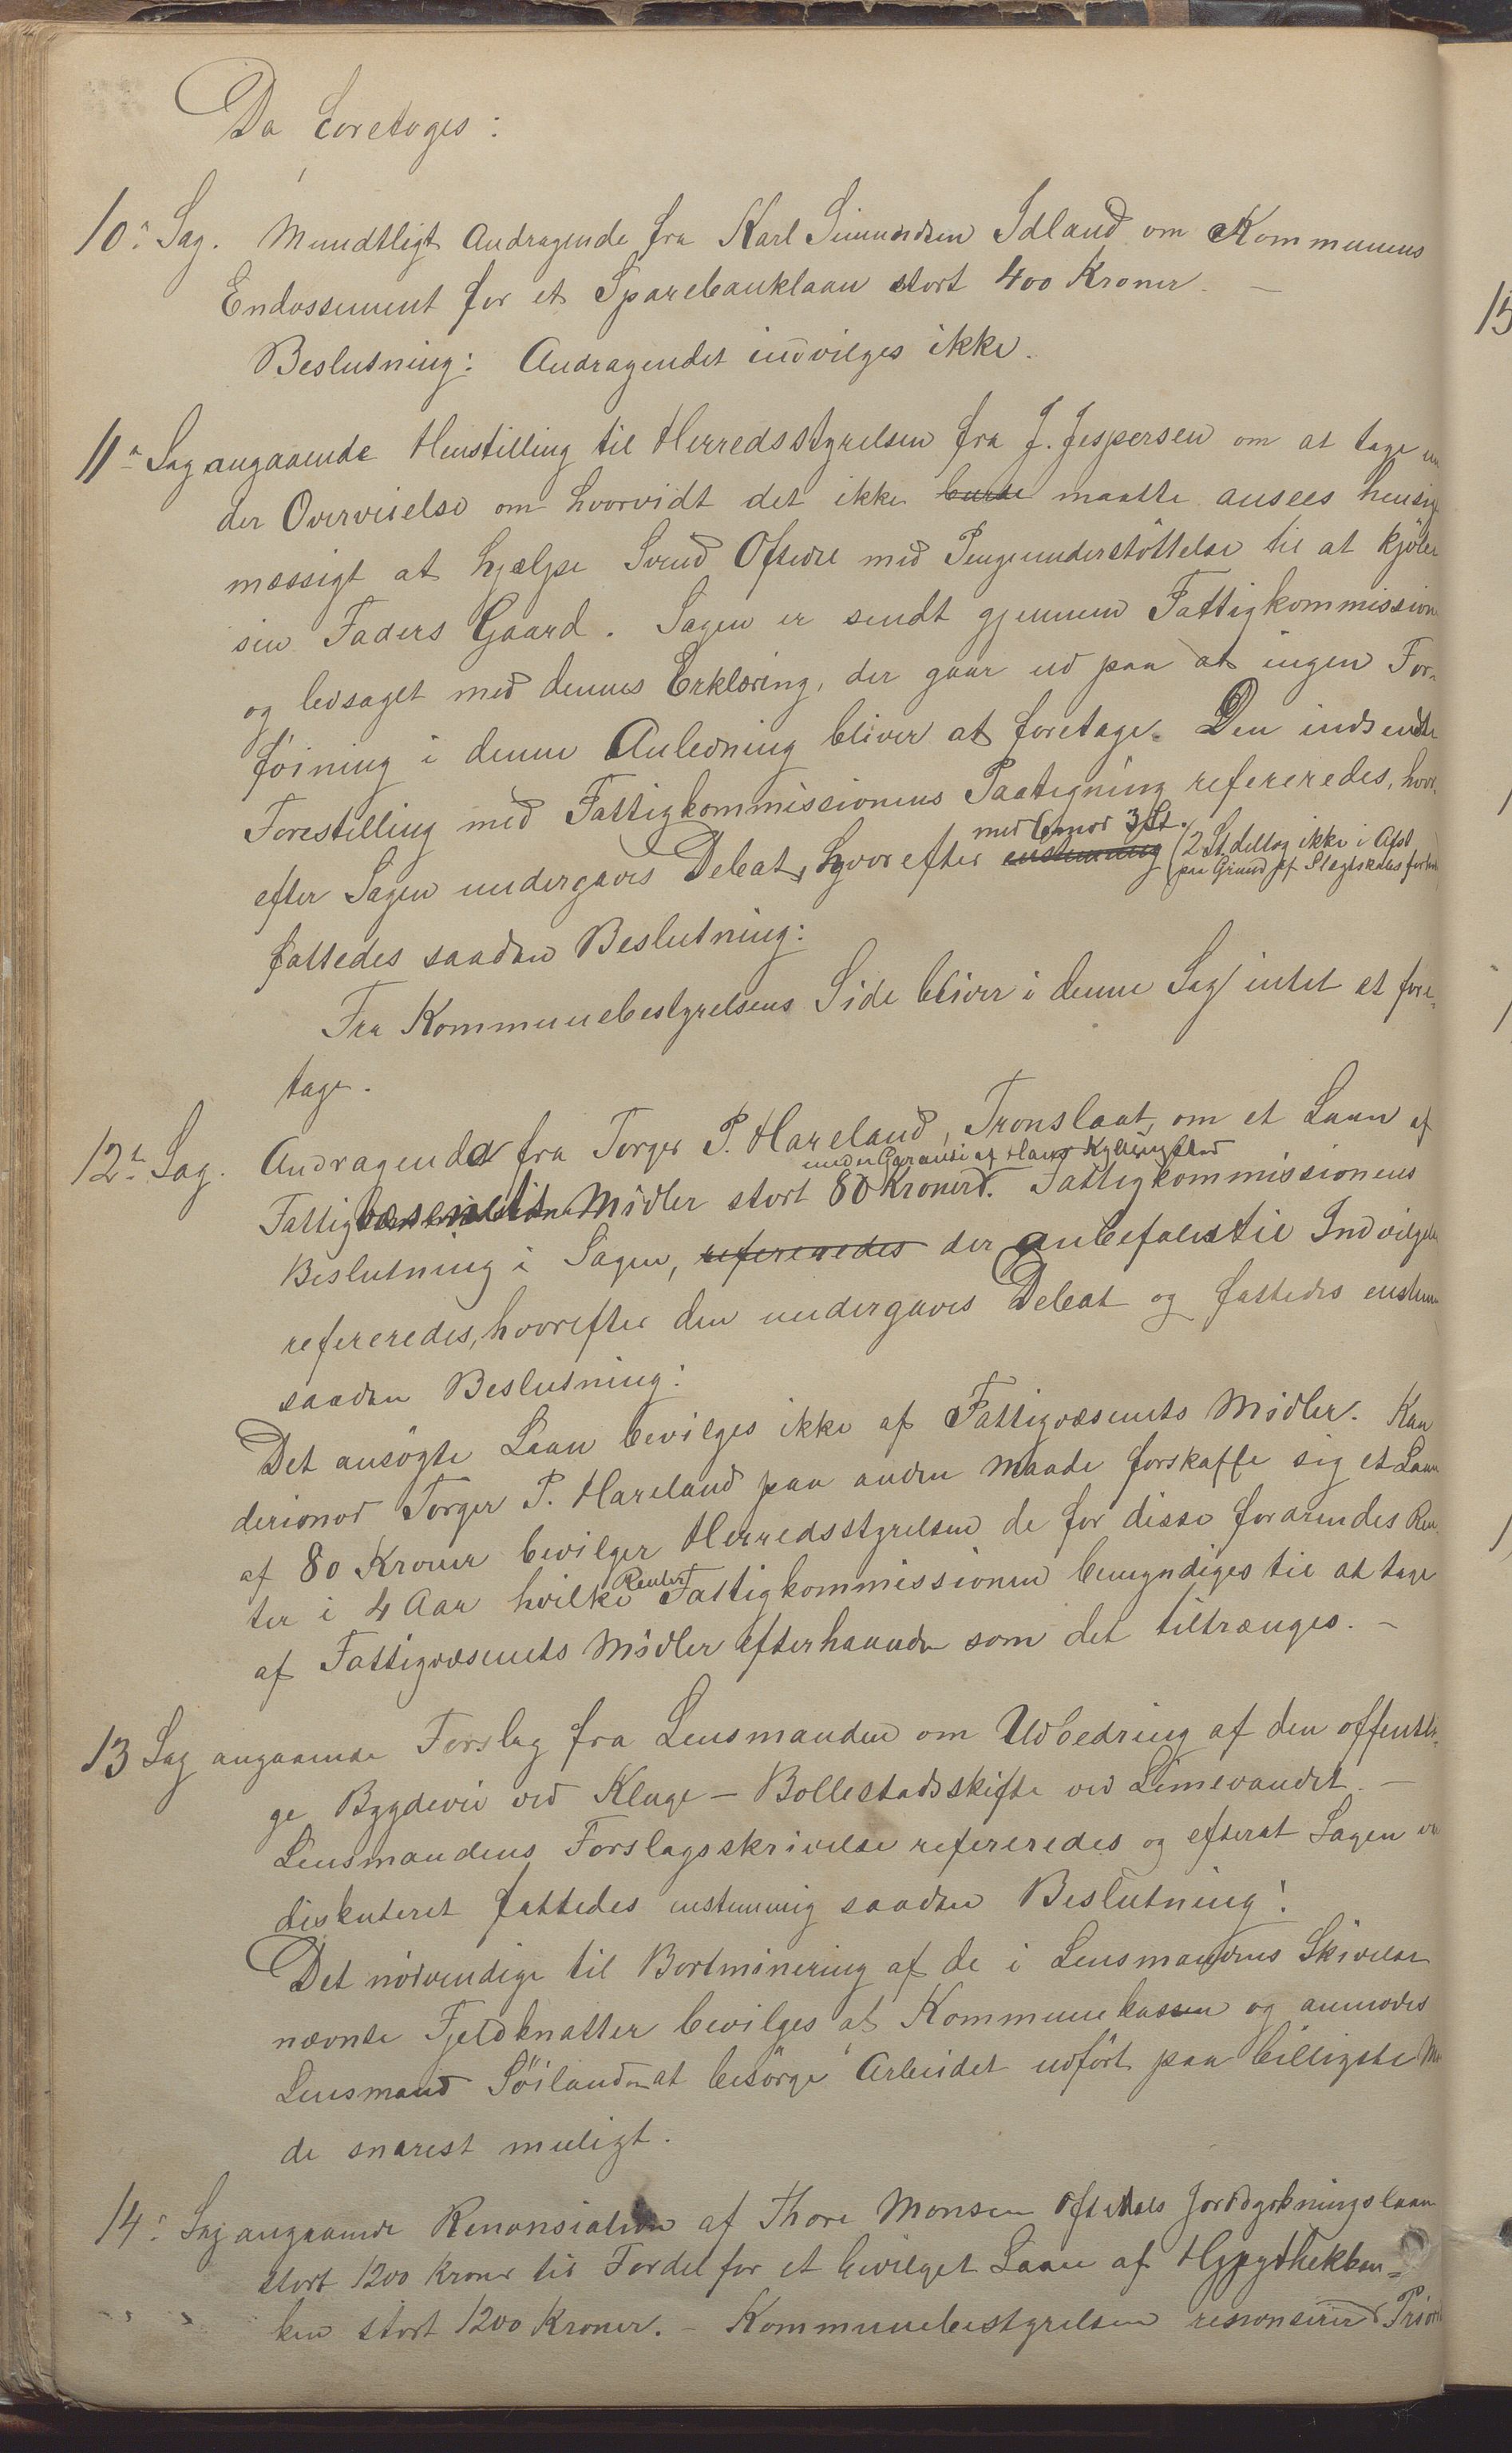 Da foretoges:
10de Sag. Mundtligt Andragende fra Karl Simundsen Idland om Kommunens
Endossement for et Sparebanklaan stort 400 Kroner. —
Beslutning: Andragendet indvilges ikke.
11te Sag angaaende Henstilling til Herredsstyrelsen fra J. Jespersen om at tage un
der Overveielse om hvorvidt det ikke burde maatte ansees hensigt
mæssigt at hjælpe Svend Oftedal med Pengeunderstöttelse til at kjöbe
sin Faders Gaard. Sagen er sendt gjennem Fattigkommission
og ledsaget med dennes Erklæring, der gaar ud paa at ingen For-
föining i denne Anledning bliver at foretage. Den indsendte
Forestilling med Fattigkommissionens Paategning refereredes, hvor-
med 6 mod 3 St.
efter Sagen undergaves Debat, hvorefter enstemmig (2 St. deltog ikke i Afst
paa Grund af Slægtskabsforh
fattedes saadan Beslutning:
Fra Kommunebestyrelsens Side bliver i denne Sag intet at fore-
tage.
12te Sag. Andragende fra Torger P. Hareland, Tronslaat, om et Laan af
under Garanti af Hans Kyllingstad
Fattigvæsenets Midler stort 80 Kroner. Fattigkommissionens
Beslutning i Sagen, refereredes der anbefales til Indvilgelse
refereredes, hvorefter den undergaves Debat og fattedes enstem
saadan Beslutning:
Det ansögte Laan bevilges ikke af Fattigvæsenets Midler. Kan
derimod Torger P. Hareland paa anden Maade forskaffe sig et Laan
af 80 Kroner bevilger Herredsstyrelsen de for disse fordrendes Ren
Renter
ter i 4 Aar hvilke Fattigkommissionen bemyndiges til at tage
af Fattigvæsenets Midler efterhaanden som det tiltrænges. —
13 Sag angaaende Forslag fra Lensmanden om Udbedring af den offentli-
ge Bygdevei ved Kluge – Bollestadsskifte ved Limevandet. —
Lensmandens Forslagsskrivelse refereredes og efterat Sagen var
diskuteret fattedes enstemmig saadan Beslutning:
Det nödvendige til Bortminering af de i Lensmandens Skivelse
nævnte Fjeldknatter bevilges af Kommunekassen og anmodes
Lensmand Söiland at besörge Arbeidet udfört paa billigste Ma
de snarest muligt.
14de Sag angaaende Renonsiation af Thore Monsen Oftedals Jorddyrkningslaan
stort 1200 Kroner til Fordel for et bevilget Laan af Hypothekban-
ken stort 1200 Kroner. – Kommunebestyrelsen renonserer Priori
15